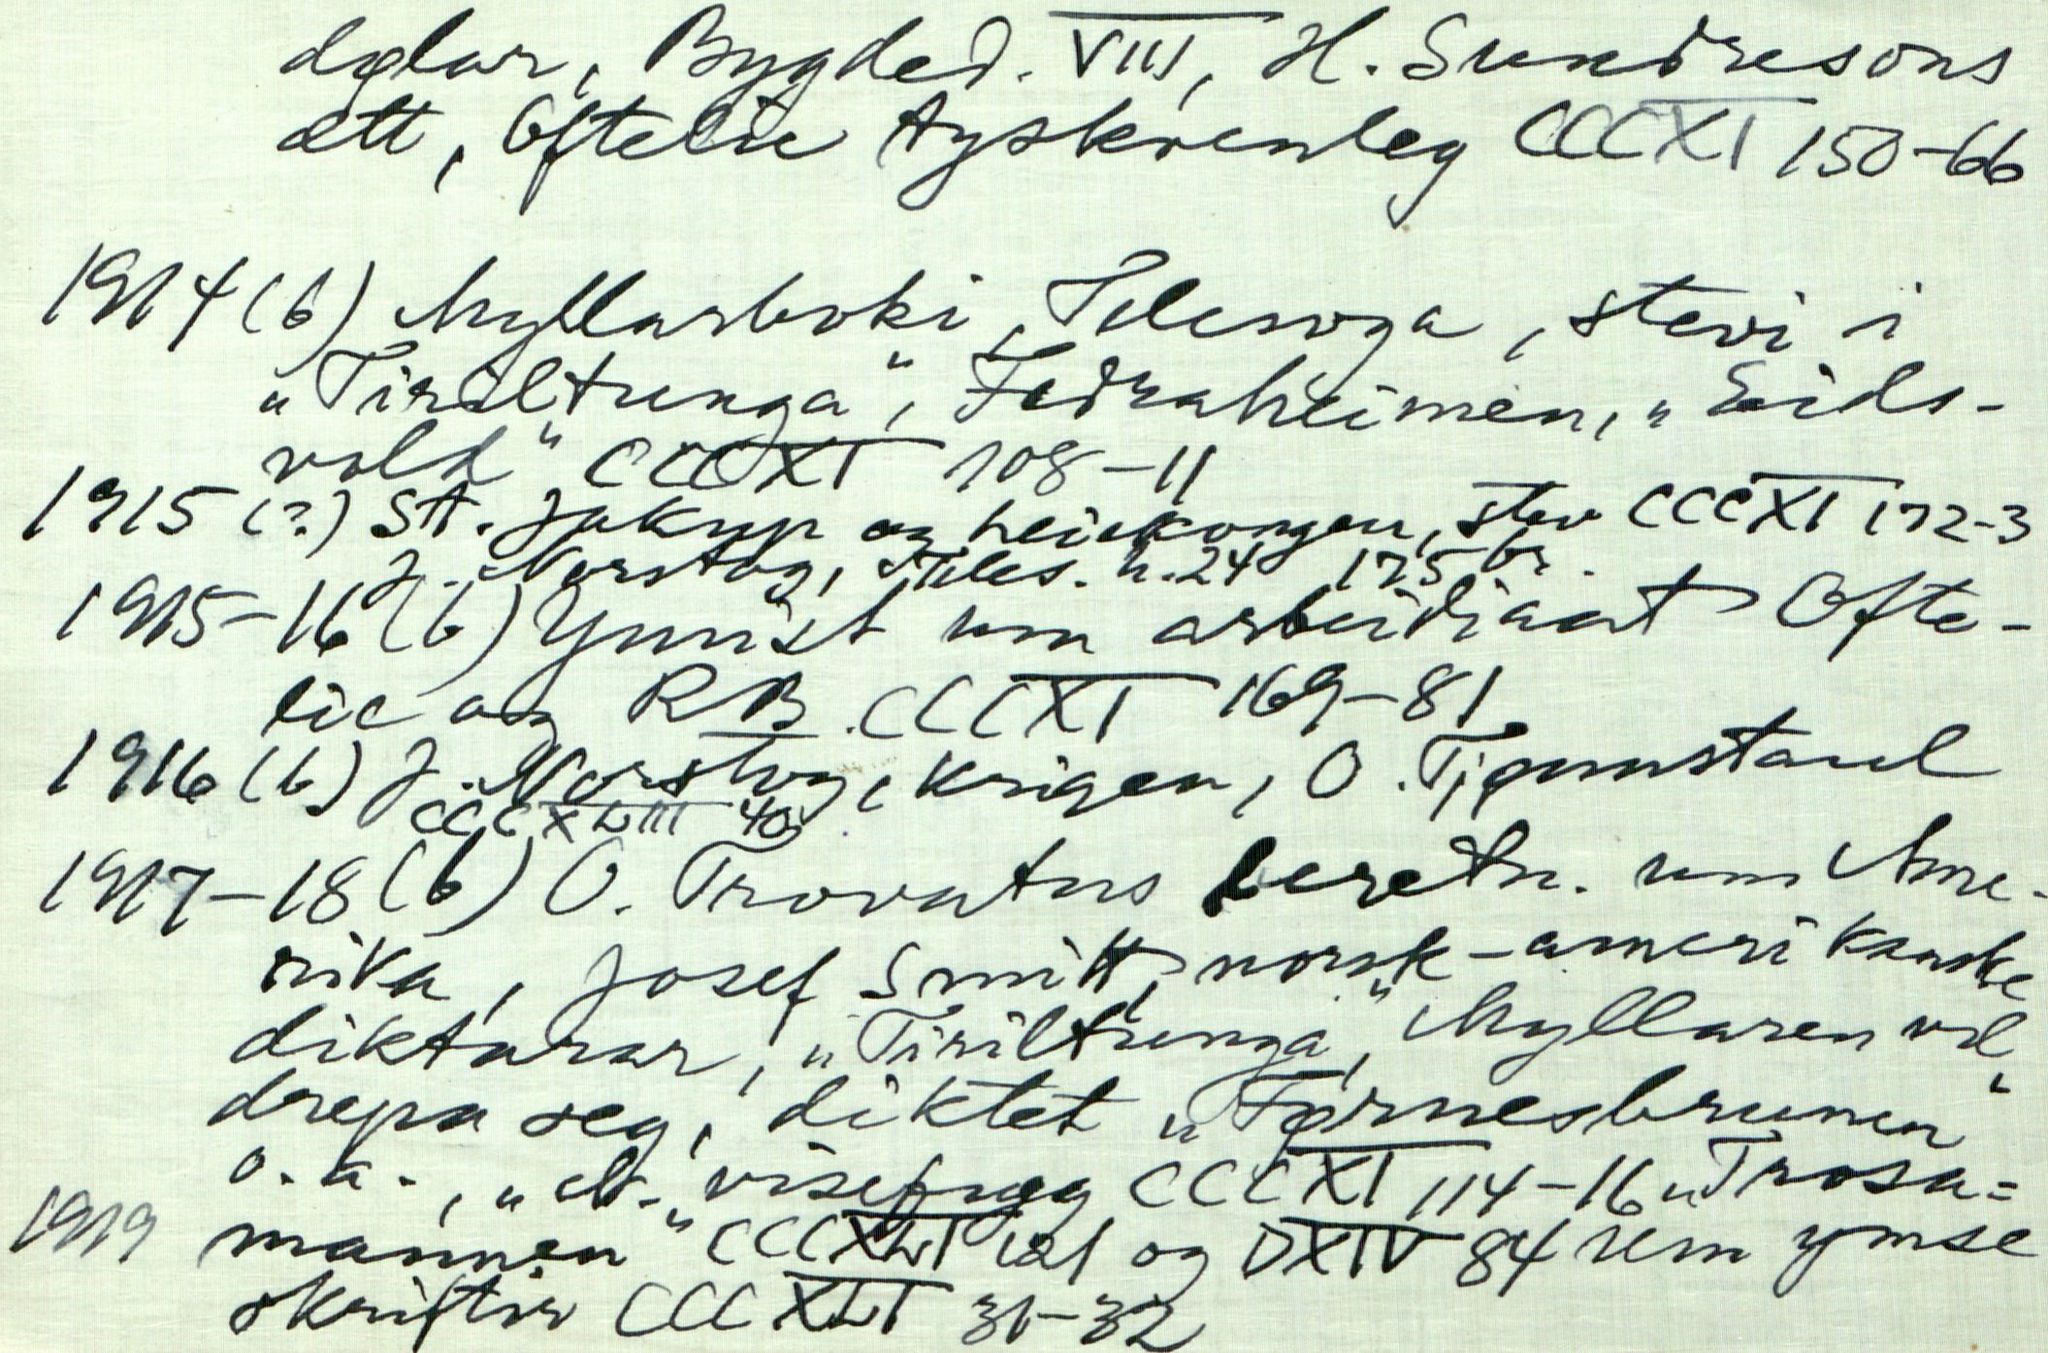 dølar, Bygded. VIII, H. Sundresons
ætt, Oftelie tyskvenleg CCCXI 150-66
1914 (b) Myllarboki, Telesoga, stevi i
„Tiriltunga“, Fedraheimen, „Eids-
vold“ CCCXI 108-11
1915 (?) St. Jakup og heidkongen, stev CCCXI 172-3
J. Norstog, Teles. h. 24 175 br.
1915-16 (b) Ymist um arbeidi aat Ofte-
lie og RB. CCCXI 169-81
1916 (b) J. Norstog, krigen, O. Tjønnstaul
CCCXLIII 40
1917-18 (b) O. Trovatns beretn. um Ame-
rika, Josef Smitt, norsk-amerikanske
diktarar, „Tiriltunga“, Myllaren vil
drepa seg, diktet „Førnesbrunen“
o.a., visefugg CCCXI 114-16 „Trosa=
mannen“ CCCXLI 121 og DXIV 84 um ymse
1919
skrifter CCCXLI 31-32